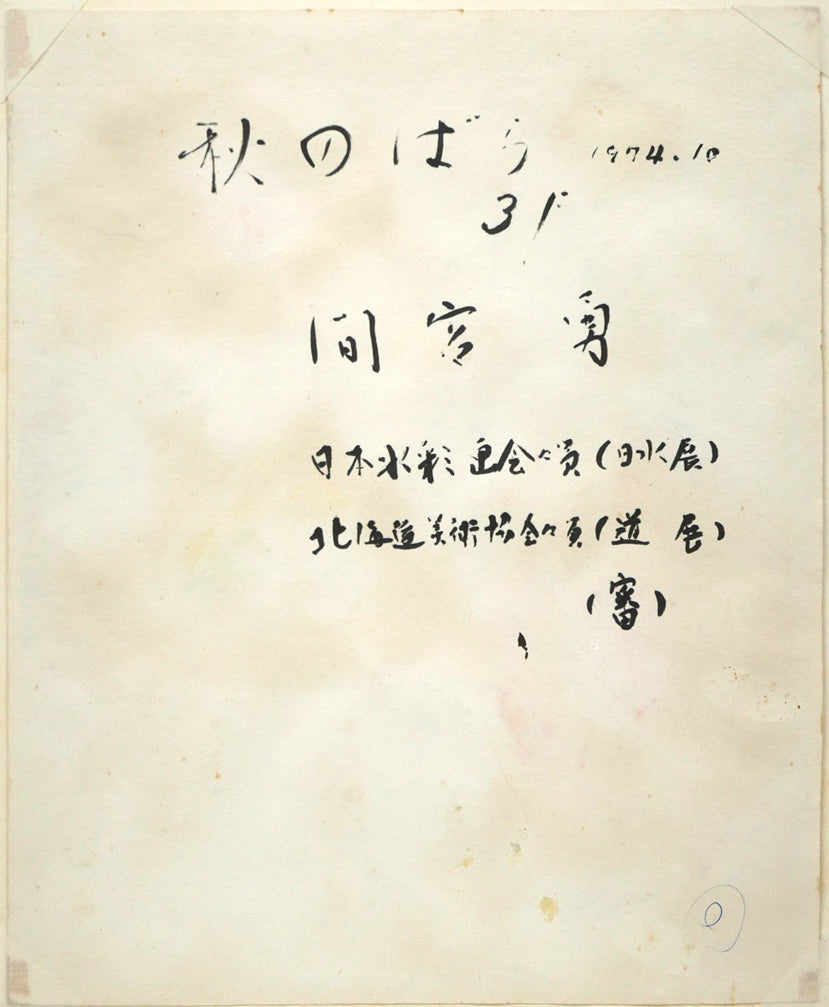 秋のばら 1974.10
3F
間宮 勇
日本水彩画会々員(日水展)
北海道美術協会々員(道 展)
(審)